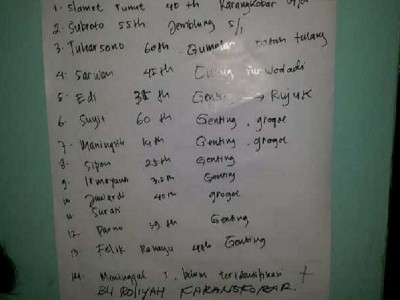 1. Slamet Tumut 40 th Karangkobar
2. Subroto 55th Jemblung 5/1
3. Tuharsono 60th. Gumelar patah tulang
4. Sarwan 45th
5. Edi 38 th Genting → Rujuk
6. Sugit 60 th Genting . grogol
7. Maningsih 14 th Genting . grogol
8. Sipon 25th Genting
9. th Genting
10. Juwardi 40th grogol
11. Surati
12. Parno 39 th Genting
13. Felik Rahayu 48th Genting
14. Meninggal : belum teridentifikasi +
KARANGKOBAR